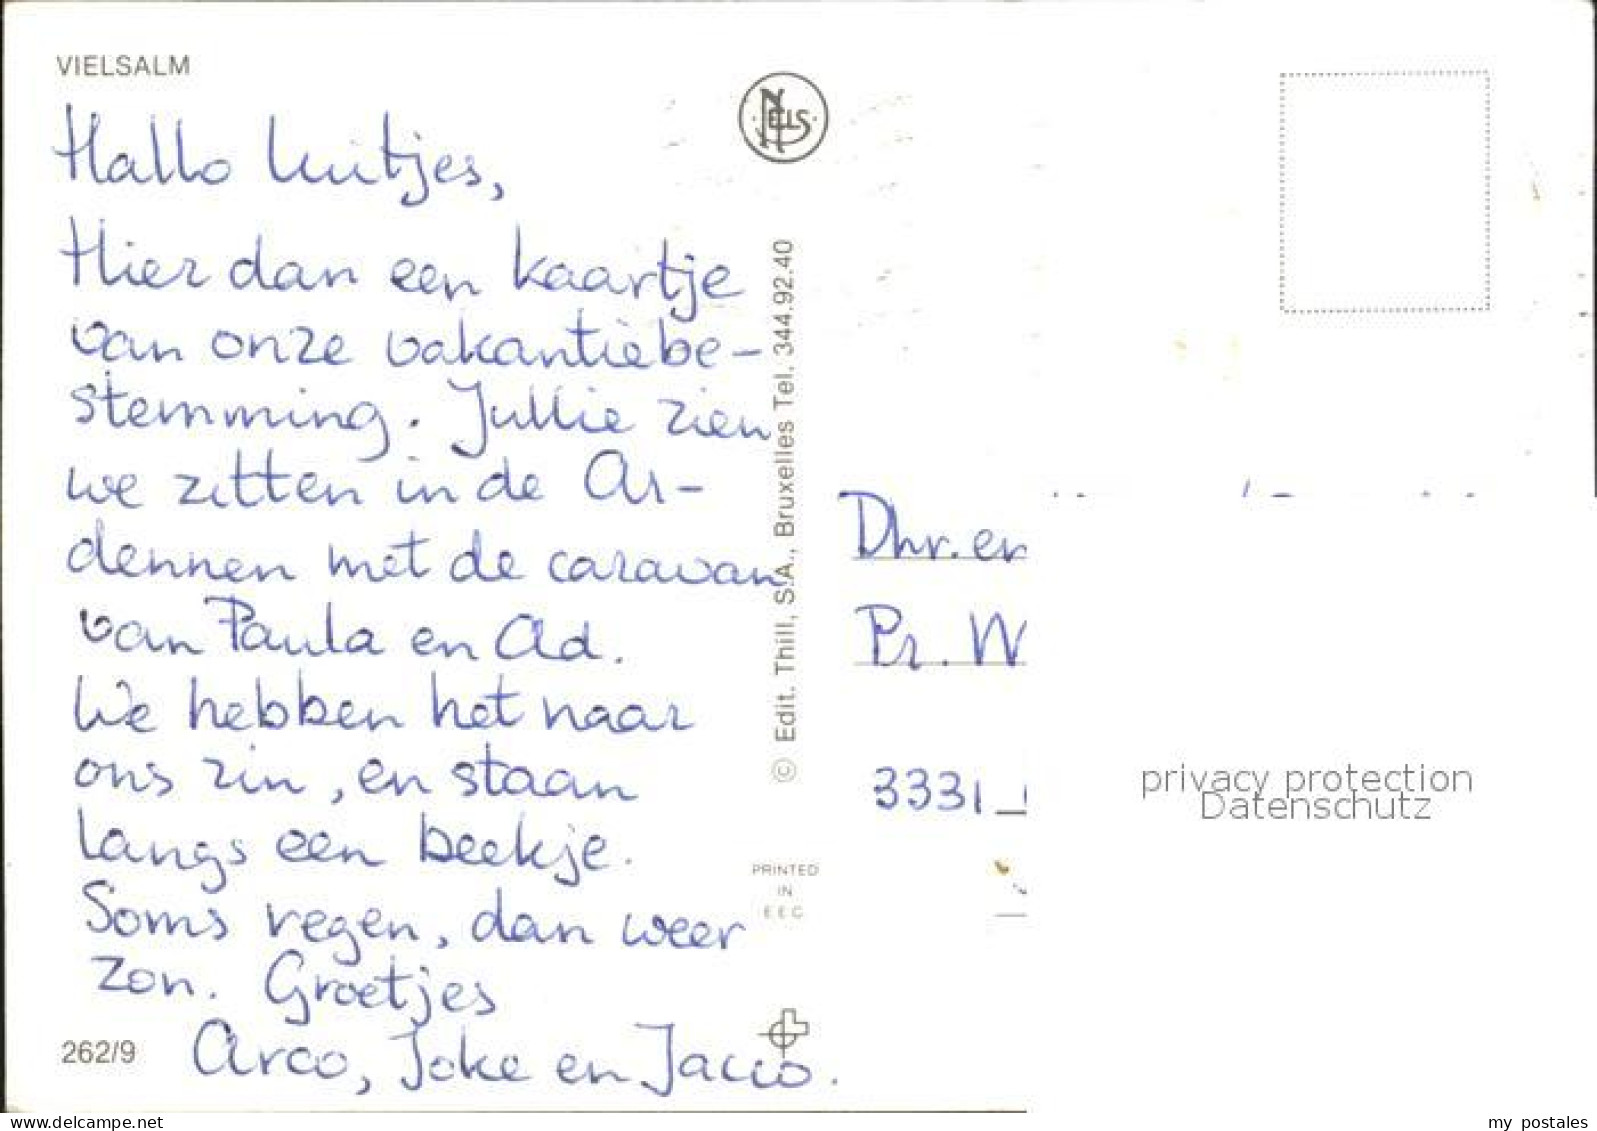 VIELSALM
NELLS
Hallo luitjes,
Hier dan een kaartje
van onze vakantiebe-
stemming. Jullie zien
we zitten in de Ar-
dennen met de caravan
van Paula en Ad.
We hebben het naar
ons zin, en staan
langs een beekje.
Soms regen, dan weer
zon. Groetjes
Arco, Joke en Jacco.
262/9
© Edit. Thill, S.A., Bruxelles Tel. 344.92.40
PRINTED
IN
EEC
Dhr. en
Pr. W
3331
privacy protection
Datenschutz
delcampe.net
my_postales